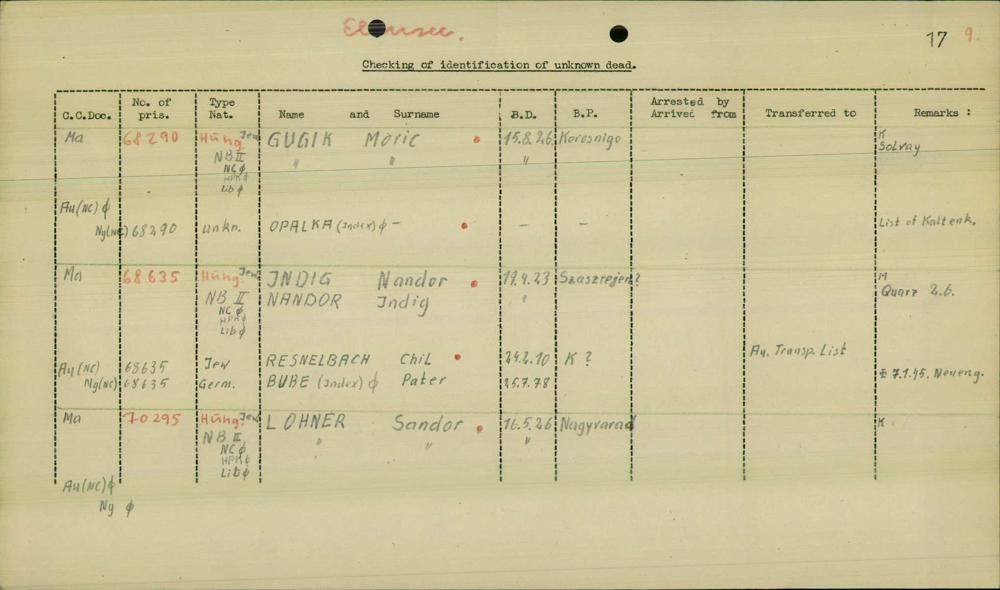 Ebensee.
17 9.
Checking of identification of unknown dead.
C.C.Doc. No. of pris. Type Nat. Name and Surname B.D. B.P. Arrested by Arrived from Transferred to Remarks :
Ma 68290 Hung. Jew GUGIK Moric 15.8.26 Korosnigo K
NB II " " " Solvay
NC ϕ
HPK ϕ
Lib ϕ
Au (NC) ϕ
Ng (NC) 68290 unkn. OPALKA (Index) ϕ - - - List of Kaltenk.
Ma 68635 Hung. Jew INDIG Nandor 19.4.23 Szaszrejen? M
NB II NANDOR Indig " Quarz 2.6.
NC ϕ
HPK ϕ
Lib ϕ
Au (NC) 68635 Jew RESNELBACH Chil 24.2.10 K ? Au. Transp. List
Ng (NC) 68635 Germ. BUBE (Index) ϕ Pater 25.7.78 ✠ 7.1.45. Neueng.
Ma 70295 Hung. Jew LOHNER Sandor 16.5.26 Nagyvarad K
NB II " " "
NC ϕ
HPK ϕ
Lib ϕ
Au (NC) ϕ
Ng ϕ